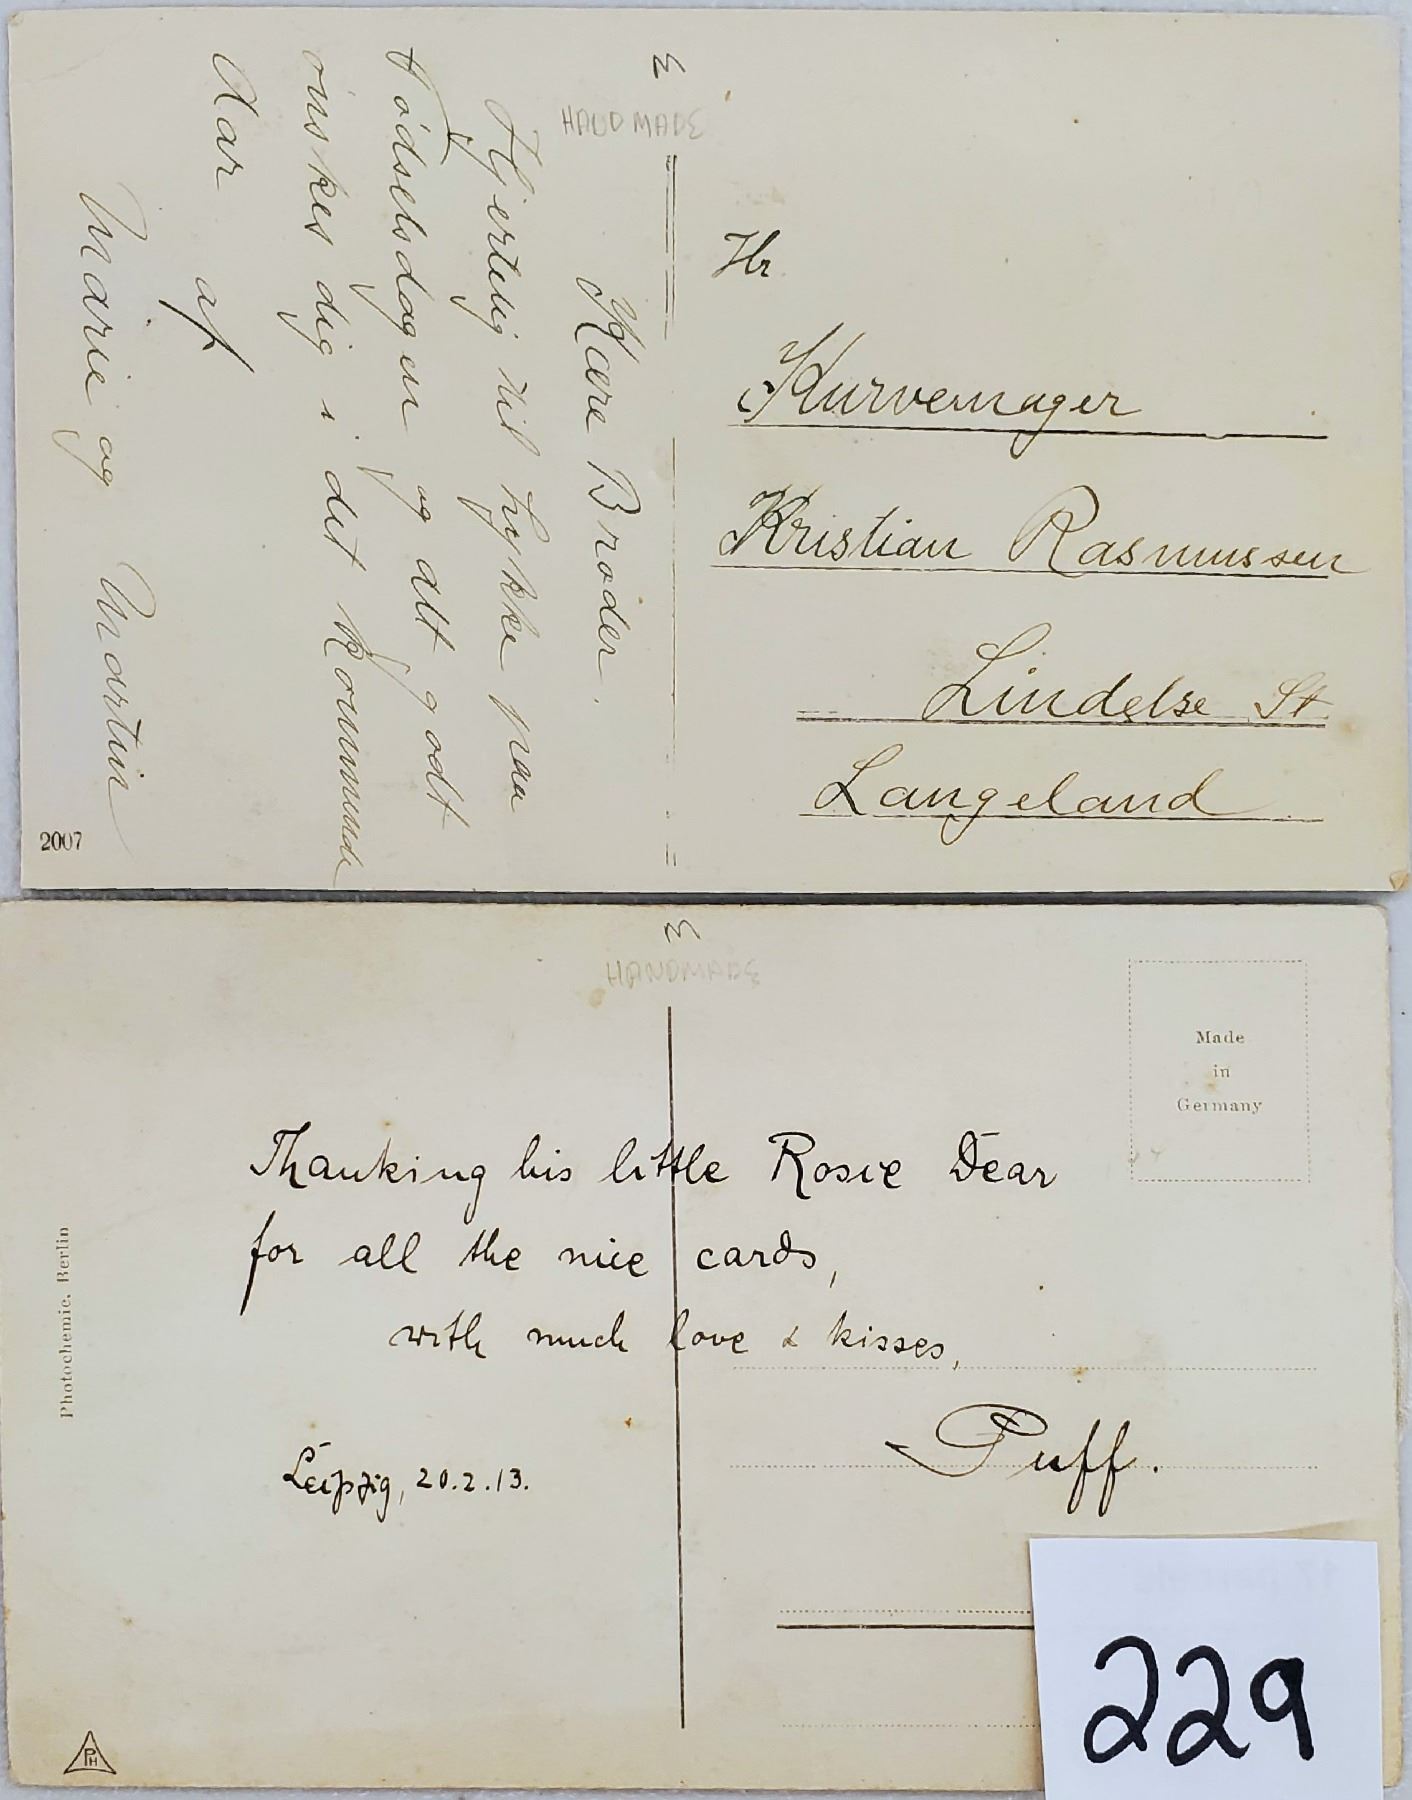 3
HANDMADE
Kære Broder.
Hjertelig til Lykke paa
Fødselsdagen og alt godt
ønskes dig i det Kommende
Aar af
Marie og Martin
2007
Hr
Kurvemager
Kristian Rasmussen
Lindelse St.
Langeland
3
HANDMADE
Made
in
Germany
Thanking his little Rosie Dear
for all the nice cards,
with much love & kisses,
Puff.
Leipzig, 20.2.13.
Photochemie, Berlin
PH
229